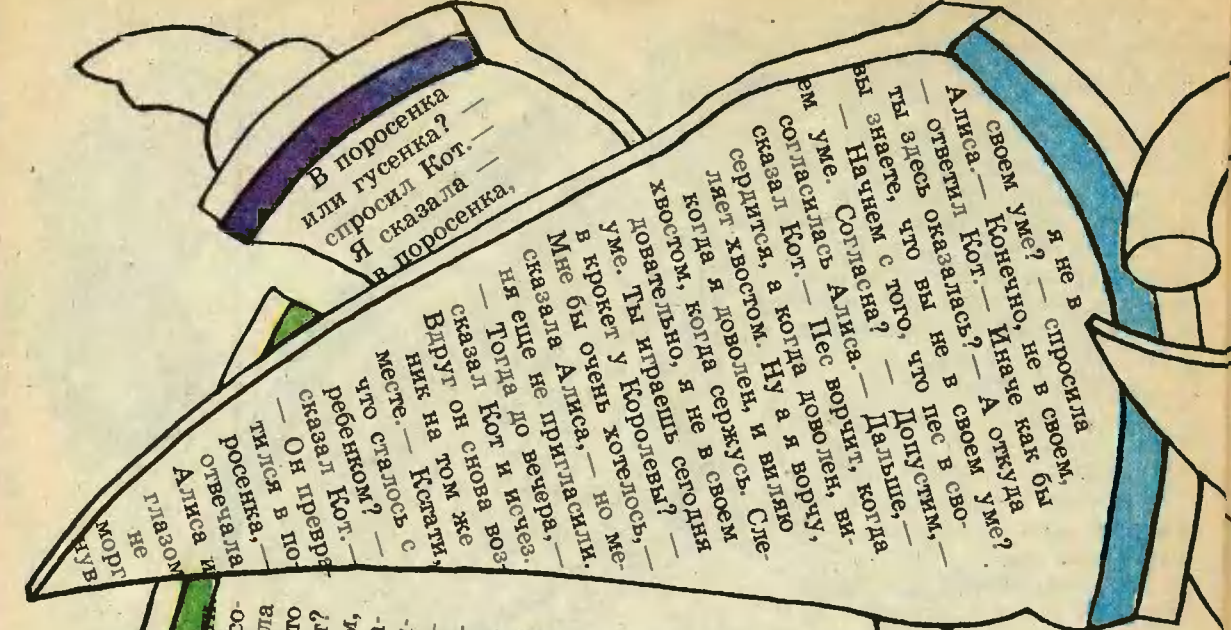 я не в
своем уме? — спросила
Алиса.— Конечно, не в своем,
— ответил Кот.— Иначе как бы
ты здесь оказалась? — А откуда
вы знаете, что вы не в своем уме?
— Начнем с того, что пес в сво-
ем уме. Согласна? — Допустим,—
согласилась Алиса.— Дальше,—
сказал Кот.— Пес ворчит, когда
сердится, а когда доволен, ви-
ляет хвостом. Ну а я ворчу,
когда я доволен, и виляю
хвостом, когда сержусь. Сле-
довательно, я не в своем
уме. Ты играешь сегодня
в крокет у Королевы? —
Мне бы очень хотелось,—
сказала Алиса,— но ме-
ня еще не пригласили.
— Тогда до вечера,—
сказал Кот и исчез.
Вдруг он снова воз-
ник на том же
месте.— Кстати,
что сталось с
ребенком? —
сказал Кот.—
— Он превра-
тился в по-
росенка,—
отвечала
Алиса и
глазом
не
морг
нув
В поросенка
или гусенка? —
спросил Кот.—
Я сказала —
в поросенка,